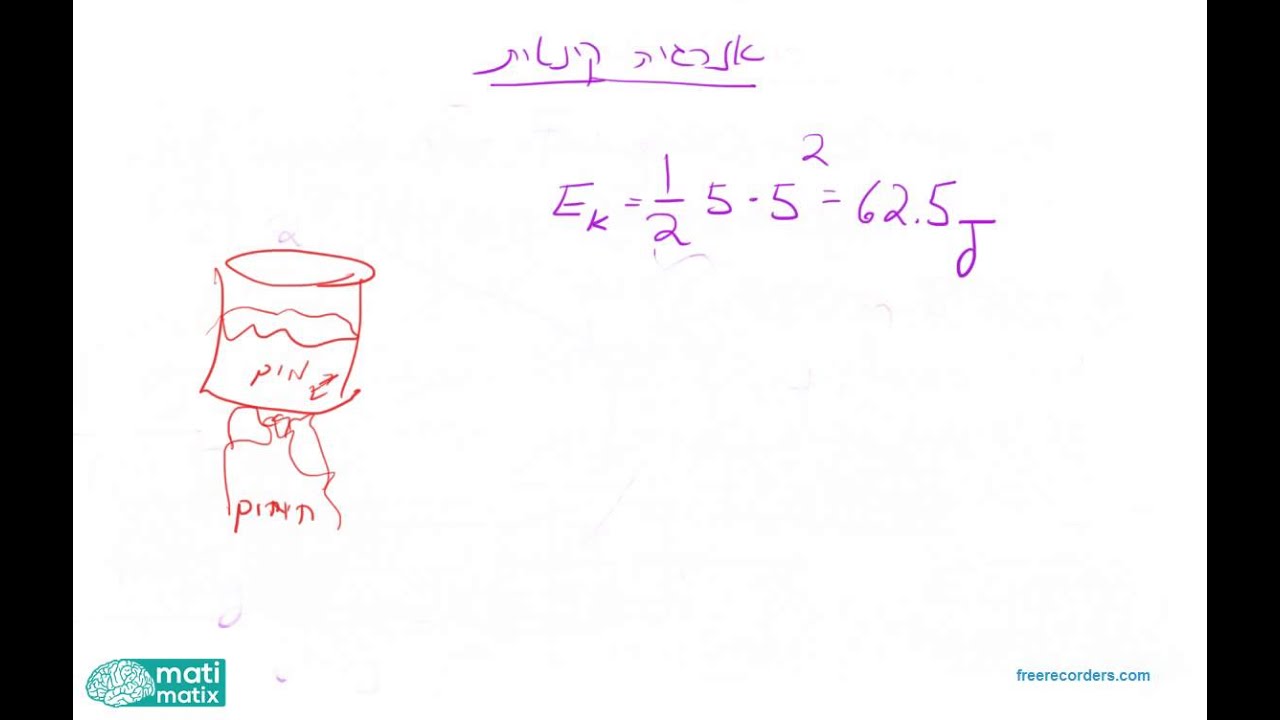 אנרגיה קינטית
E_k = 1/2 5 · 5² = 62.5 J
מים
mati
matix
freerecorders.com